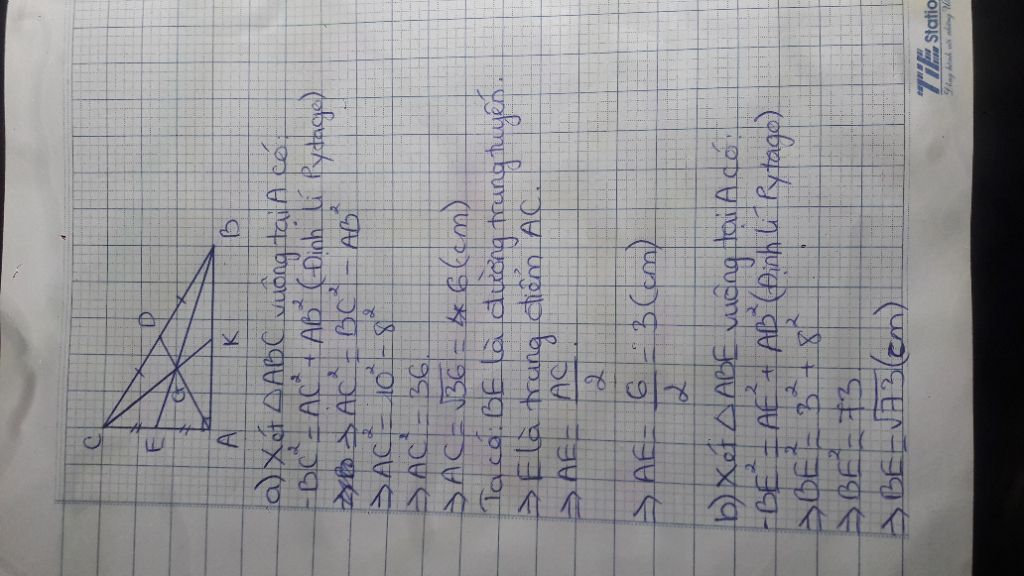 C
D
E
G
A
K
B
a) Xét △ABC vuông tại A có:
- BC² = AC² + AB² (Định lí Pytago)
⇒ AC² = BC² - AB²
⇒ AC² = 10² - 8²
⇒ AC² = 36
⇒ AC = √36 = 6 (cm)
Ta có: BE là đường trung tuyến.
⇒ E là trung điểm AC.
⇒ AE = AC/2
⇒ AE = 6/2 = 3 (cm)
b) Xét △ABE vuông tại A có:
- BE² = AE² + AB² (Định lí Pytago)
⇒ BE² = 3² + 8²
⇒ BE² = 73
⇒ BE = √73 (cm)